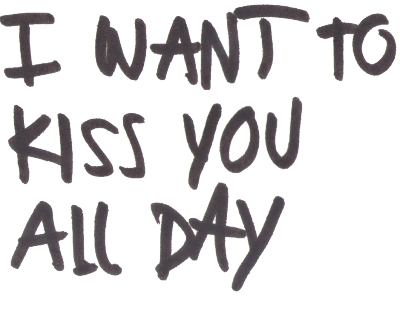 I WANT TO
KISS YOU
All DAY